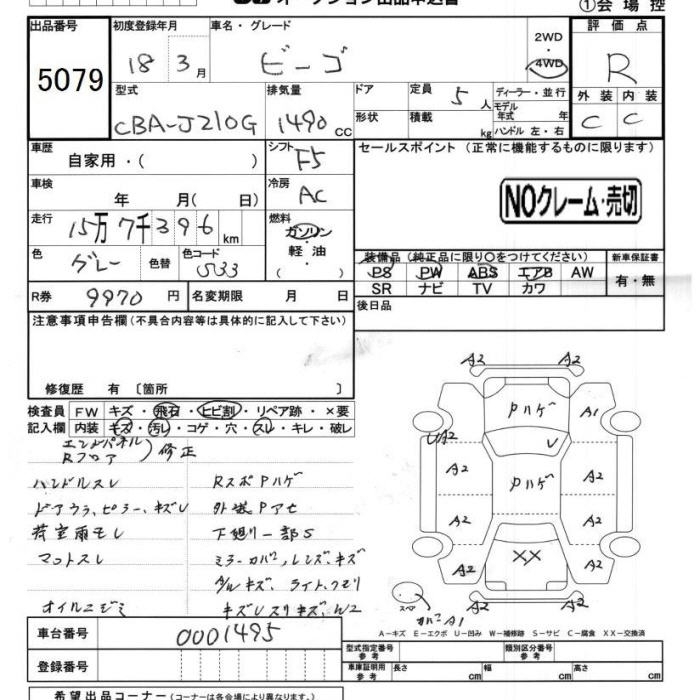 オークション出品申込書
①会場控
出品番号 5079
初度登録年月 18 3月
車名・グレード ビーゴ
2WD・4WD
評価点 R
型式 CBA-J210G
排気量 1490 CC
ドア 形状
定員 5人
積載 kg
ディーラー・並行
モデル年式 年
ハンドル 左・右
外装 C 内装 C
車歴 自家用・( )
シフト F5
セールスポイント (正常に機能するものに限ります)
NOクレーム・売切
車検 年 月( 日)
冷房 AC
走行 15万7千396 km
燃料 ガソリン・軽油
( )
色 グレー 色替 色コード S33
装備品(純正品に限り○をつけてください)
PS PW ABS エアB AW
SR ナビ TV カワ
新車保証書 有・無
R券 9970円 名変期限 月 日
後日品
注意事項申告欄(不具合内容等は具体的に記入して下さい)
修復歴 有 〔箇所 〕
検査員記入欄
FW キズ・飛石・ヒビ割・リペア跡・×要
内装 キズ・汚レ・コゲ・穴・スレ・キレ・破レ
エンドパネル
Rフロア
)修正
ハンドルスレ RスポPハゲ
ドアウラ、ピラー、キズレ 外装Pアセ
荷室雨モレ 下廻リ一部S
マットスレ ミラーカバー、レンズ、キズ
ライト、クモリ
オイルニジミ
A2 A2
Pハゲ A1
UA2 U
A2 Pハゲ A2
A2 A2
A2 XX A2
A2 A2
スペア
カバーA1
A-キズ E-エクボ U-凹み W-補修跡 S-サビ C-腐食 XX-交換済
車台番号 0001495
登録番号
型式指定番号 参考
類別区分番号 参考
車庫証明用 参考 長さ cm 幅 cm 高さ cm
希望出品コーナー(コーナーは各会場により異なります。)